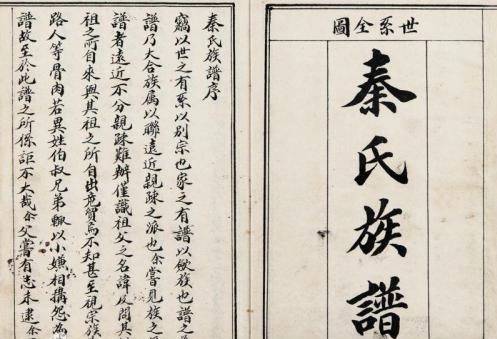 世系全圖
秦氏族譜
秦氏族譜序
竊以世之有系以別宗也家之有譜以收族也譜之
譜乃大合族属以聯遠近親疎之派也余嘗見族之
譜者遠近不分親疎難辦僅識祖父之名諱及問其
祖之所自來與其祖之所自出竟貿焉不知甚至視宗族
路人等骨肉若異姓伯叔兄弟輒以小嫌相搆怨為
譜故至於此譜之所係詎不大哉余父嘗有志未逮余